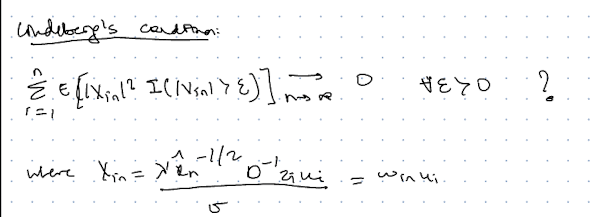 Lindeberg's condition:
n
Σ E[|X_in|² I(|X_in| > ε)] → 0 ∀ε>0 ?
i=1 n→∞
where X_in = λ' n^-1/2 D^-1 z_i u_i = w_in u_i
σ